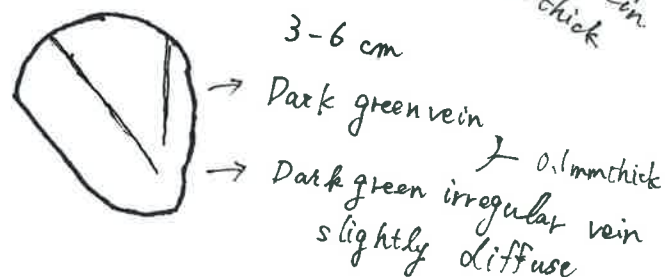 in
thick
3-6 cm
Dark green vein
0.1mm thick
Dark green irregular vein
slightly diffuse